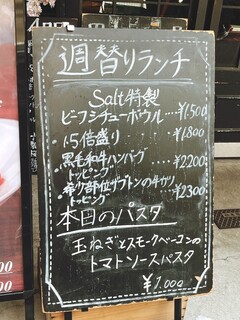 週替りランチ
Salt特製
ビーフシチューボウル ¥1,500
1.5倍盛り ¥1,800
黒毛和牛ハンバーグ
トッピング ¥2200
希少部位ザブトンの牛カツ
トッピング ¥2300
本日のパスタ
玉ねぎとスモークベーコンの
トマトソースパスタ
¥1,000